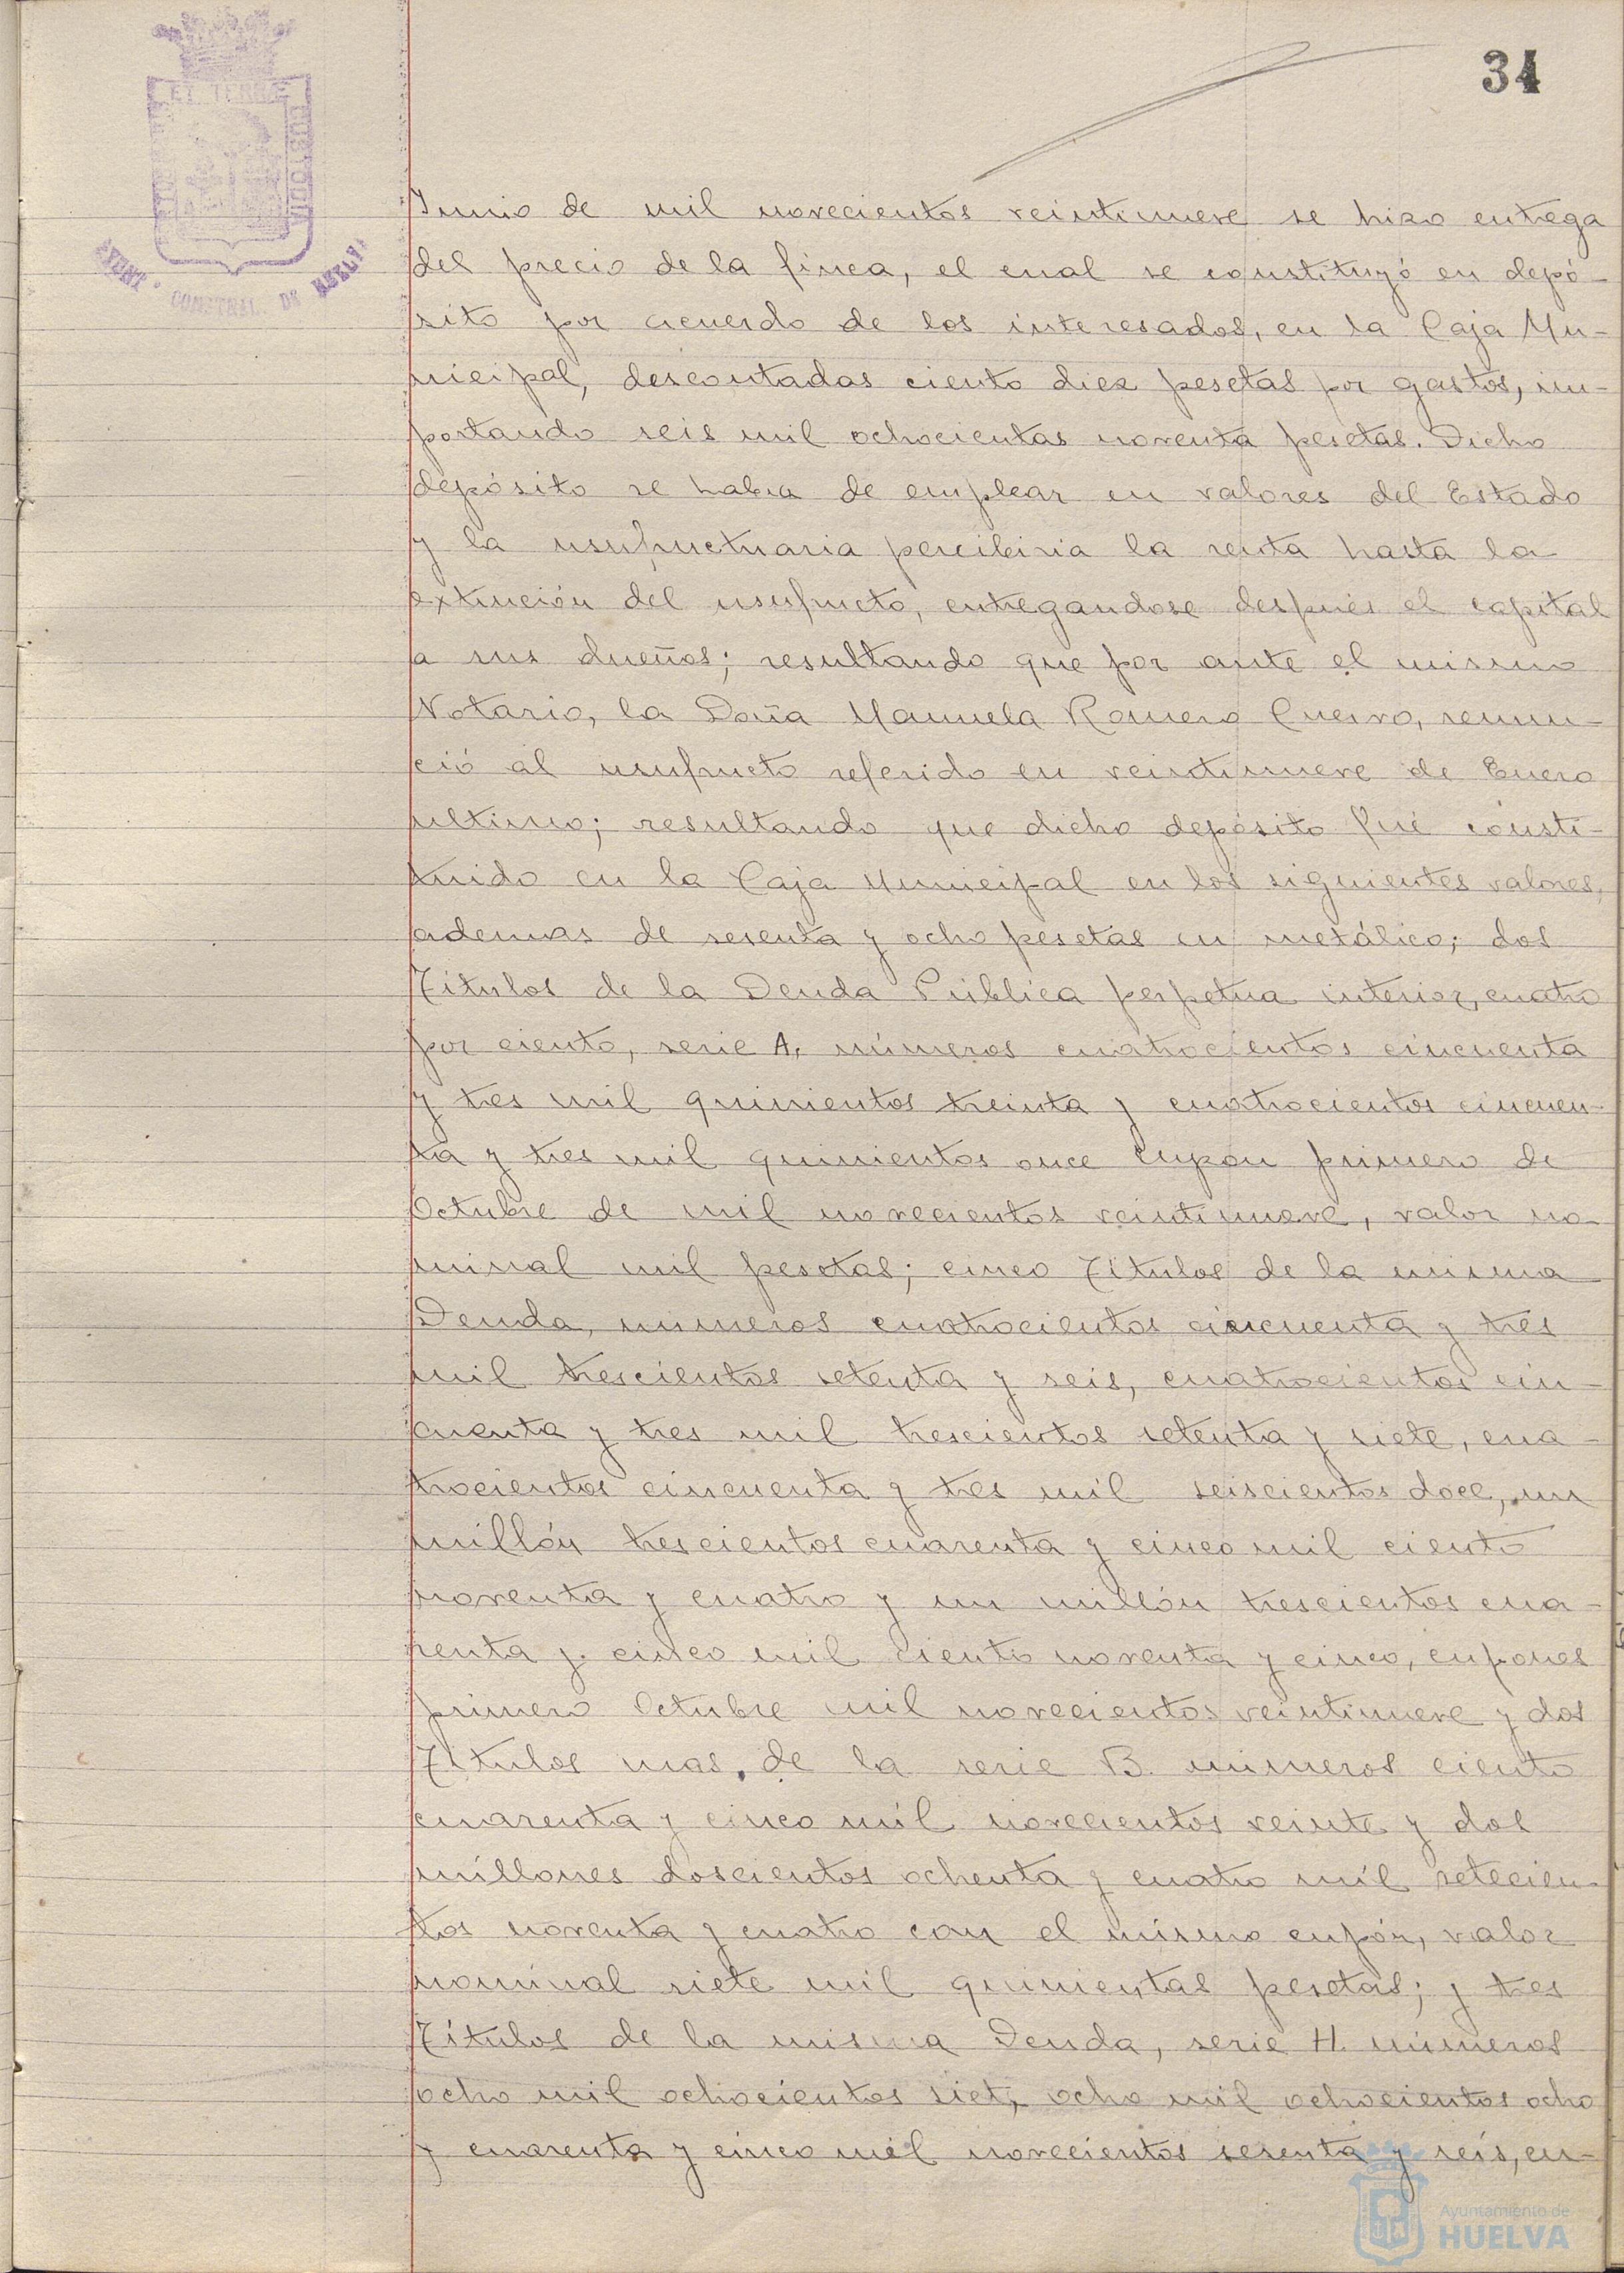 34
ET TERRÆ
CUSTODIA
AYUNT. CONSTNAL. DE HUELVA
Junio de mil novecientos veintinueve se hizo entrega
del precio de la finca, el cual se constituyó en depó-
sito por acuerdo de los interesados, en la Caja Mu-
nicipal, descontadas ciento diez pesetas por gastos, im-
portando seis mil ochocientas noventa pesetas. Dicho
depósito se habia de emplear en valores del Estado
y la usufructuaria percibiria la renta hasta la
extinción del usufructo, entregandose despues el capital
a sus dueños; resultando que por ante el mismo
Notario, la Doña Manuela Romero Cuervo, renun-
ció al usufructo referido en veintinueve de Enero
ultimo; resultando que dicho depósito fué consti-
tuido en la Caja Municipal en los siguientes valores,
ademas de sesenta y ocho pesetas en metálico; dos
Titulos de la Deuda Pública perpetua interior, cuatro
por ciento, serie A, números cuatrocientos cincuenta
y tres mil quinientos treinta y cuatrocientos cincuen-
ta y tres mil quinientos once cupon primero de
Octubre de mil novecientos veintinueve, valor no-
minal mil pesetas; cinco Titulos de la misma
Deuda, numeros cuatrocientos cincuenta y tres
mil trescientos setenta y seis, cuatrocientos cin-
cuenta y tres mil trescientos setenta y siete, cua-
trocientos cincuenta y tres mil seiscientos doce, un
millón trescientos cuarenta y cinco mil ciento
noventa y cuatro y un millón trescientos cua-
renta y cinco mil ciento noventa y cinco, cupones
primero Octubre mil novecientos veintinueve y dos
Titulos mas, de la serie B. numeros ciento
cuarenta y cinco mil novecientos veinte y dos
millones doscientos ochenta y cuatro mil setecien-
tos noventa y cuatro con el mismo cupón, valor
nominal siete mil quinientas pesetas; y tres
Títulos de la misma Deuda, serie H. números
ocho mil ochocientos siete, ocho mil ochocientos ocho
y cuarenta y cinco mil novecientos sesenta y seis, cu-
Ayuntamiento de
HUELVA